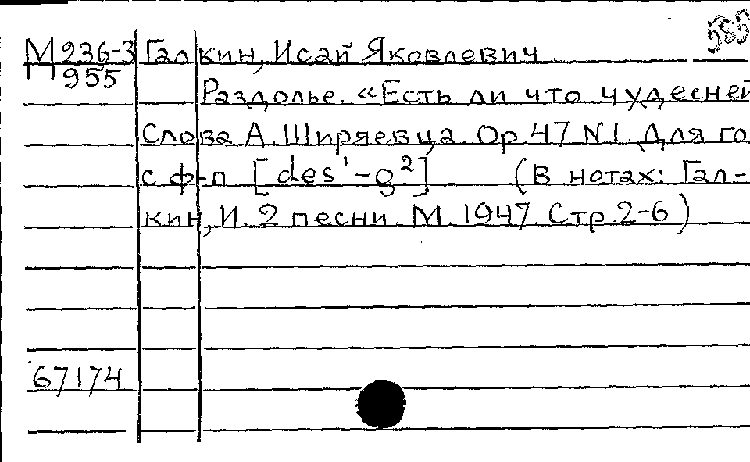 585
М 236-3 Галкин, Исай Яковлевич
955
Раздолье. «Есть ли что чудесней
Слова А. Ширяевца. Ор. 47 N1. Для го
с ф-п [des¹-g²] (В нотах: Гал-
кин, И. 2 песни. М. 1947. Стр. 2-6)
67174